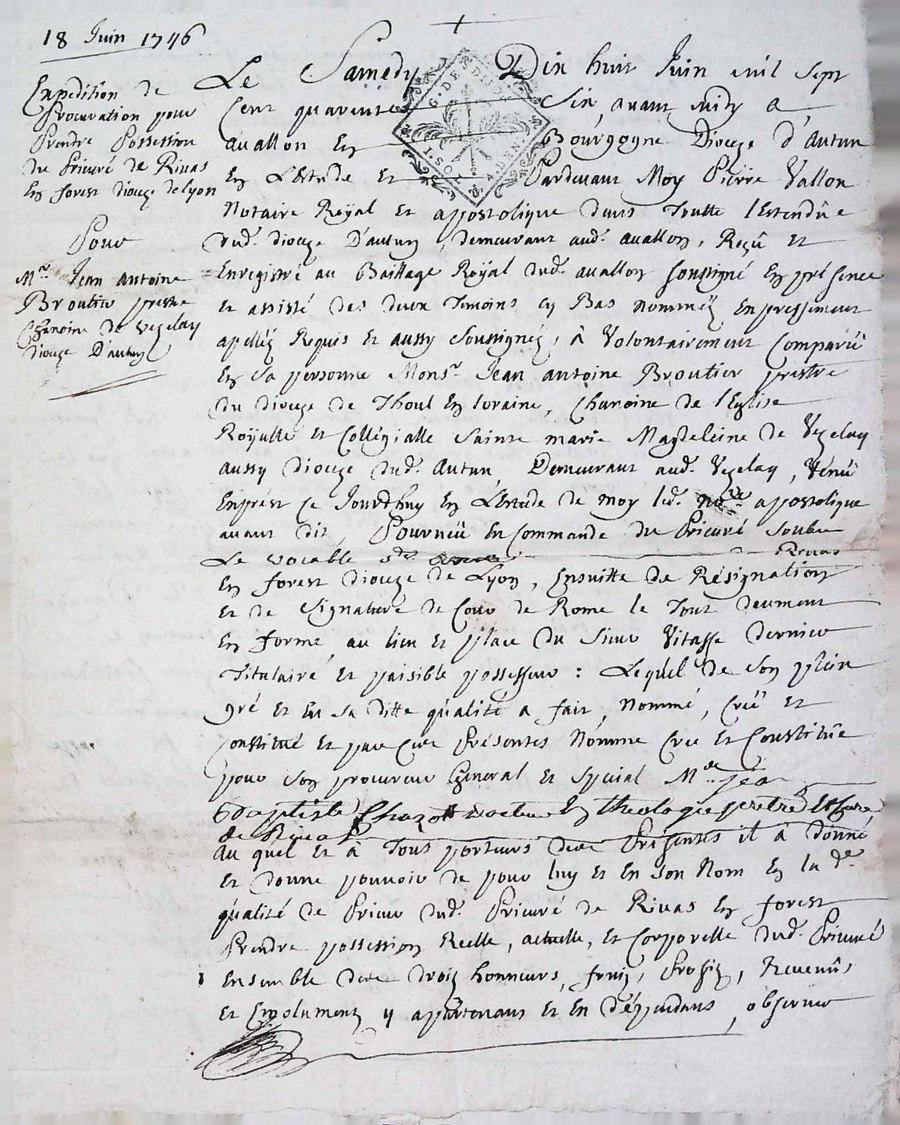 18 Juin 1746
Expedition de
Procuration pour
Prendre Possession
du Prieuré de Rivas
En forest dioceze de Lyon
Pour
Mre. Jean Antoine
Broutier prestre
Chanoine de Vezelay
dioceze D'autun
Le Samedy Dix huit Juin mil sept
Cent quarente Six avant midy a
avallon En Bourgogne Dioceze d'Autun
En L'Estude Et Pardevant Moy Pierre Vallon
G. DE DIJON
1. SOL
Notaire Royal Et apostolique dans Toutte l'Estendüe
dud. dioceze D'autun, demeurant aud. avallon, Reçû Et
Enregistré au Bailliage Royal dud. avallon soussigné En présence
et assisté des deux Temoins cy Bas nomméz Expressement
apelléz Requis Et aussy Soussignéz, à Volontairement Comparü
En Sa personne Monsr. Jean antoine Broutier prestre
du dioceze de Thoul En loraine, Chanoine de l'Eglise
Royalle et Collégialle Sainte marie Magdeleine de Vezelay
aussy dioceze dud. Autun Demeurant aud. Vezelay, Vénü
Exprest ce Jourdhuy En L'Estude de moy led. nore. apostolique
avant dit, Pourveü En Commande du Prieuré Soubs
Le vocable de Rivas
En forest dioceze de Lyon, Ensuitte de Résignation
et de Signature de Cour de Rome le Tout deument
En forme, au lieu Et place du Sieur Vitasse dernier
Titulaire et paisible possesseur : Lequel de Son plein
gré Et En Sa ditte qualité a fait, Nommé, Créé et
constitué Et par ces Présentes Nomme Crée Et Constitüe
pour Son procureur General et Special Mre. Jean
Baptiste docteur En theologie prestre Et Curé
de Rivas
au quel Et à Tous porteurs des Présentes il à donné
Et donne pouvoir de pour luy Et En Son Nom En la de.
qualité de Prieur dud. Prieuré de Rivas En forest
Prendre possession Reelle, actuelle, Et Corporelle dud. Prieuré
Ensemble des droiz honneurs, fruiz, Profiz, Revenüs
Et Emolumenz y appartenans Et En dépendans, observer